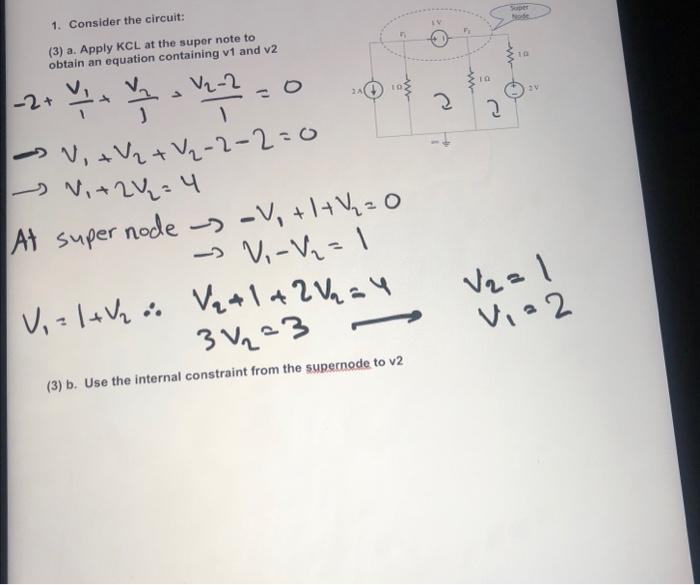 1. Consider the circuit:
(3) a. Apply KCL at the super note to
obtain an equation containing v1 and v2
Super
Node
1 V
V₁
V₂
2 A
1 Ω
1 Ω
1 Ω
2 V
-2 + V₁/1 + V₂/1 + V₂-2/1 = 0
→ V₁ + V₂ + V₂ - 2 - 2 = 0
→ V₁ + 2V₂ = 4
At super node → -V₁ + 1 + V₂ = 0
→ V₁ - V₂ = 1
V₁ = 1 + V₂ ∴ V₂ + 1 + 2V₂ = 4
3V₂ = 3 → V₂ = 1
V₁ = 2
(3) b. Use the internal constraint from the supernode to v2